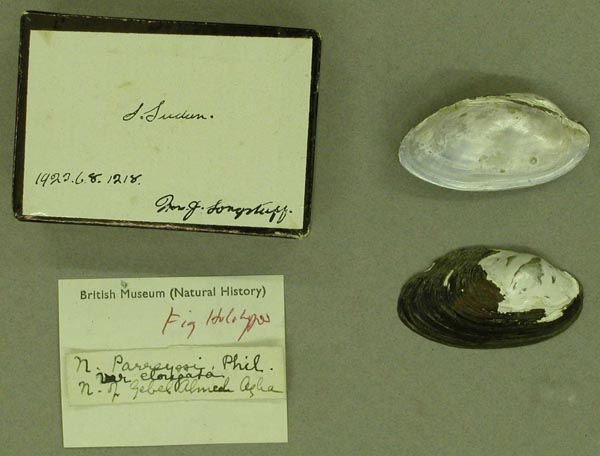 S. Sudan.
1922.6.8.1218.
Mrs J. Longstaff.
British Museum (Natural History)
Fig Holotype
N. Parreyssi, Phil.
var elongata
N. of Gebel Ahmed Agha